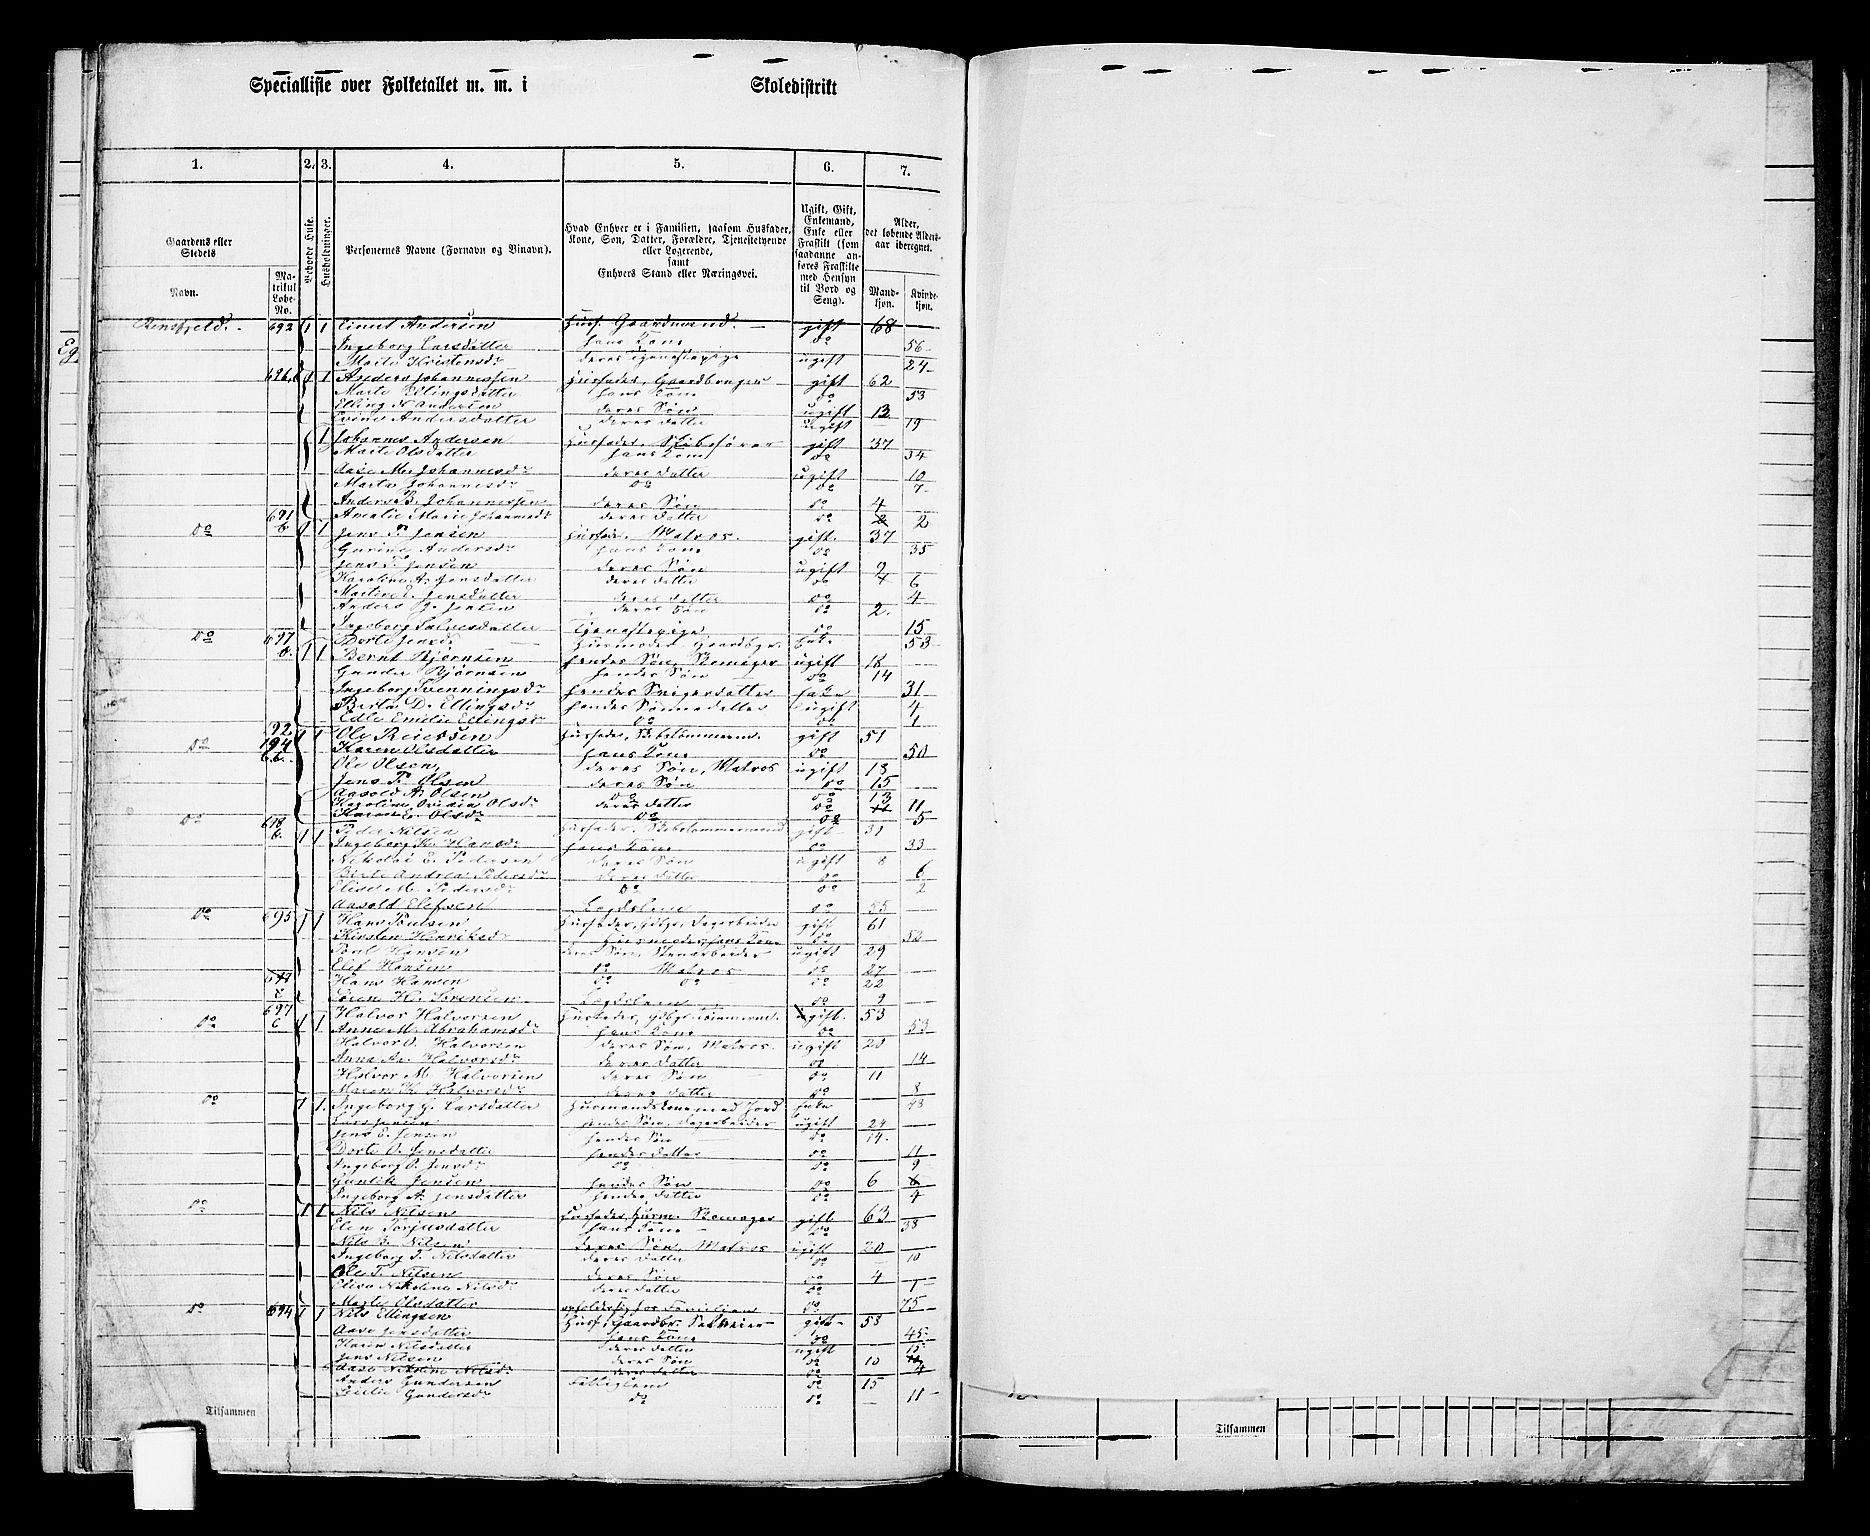 Specialliste over Folketallet m. m. i Skoledistrikt
1. 2. 3. 4. 5. 6. 7.
Gaardens eller Stedets
Navn.
Matrikul Løbe-No.
Beboede Huse.
Husholdninger.
Personernes Navne (Fornavn og Vinavn).
Hvad Enhver er i Familien, saasom Husfader, Kone, Søn, Datter, Forældre, Tjenestetyende eller Logerende, samt Enhvers Stand eller Næringsvei.
Ugift, Gift, Enkemand, Enke eller Fraskilt (som saadanne anføres Fraskilte med Hensyn til Bord og Seng).
Alder, det løbende Aldersaar iberegnet.
Mandkjøn. Kvindekjøn.
692 1 1 Andersen Husf. Gaardmand. gift 68
Ingeborg Larsdatter hans Kone do 56
Marte Kristensdr deres Tjenestepige ugift 24
696 1 1 Anders Johannessen Husfader, Gaardbruger gift 62
Marte Ellingsdatter hans Kone do 53
Elling N. Andersen deres Søn ugift 13
Andersdatter deres Datter ugift 19
1 Johannes Andersen Husfader, Skibsfører gift 37
Marte Olsdatter hans Kone do 34
Aase M. Johannesdr deres Datter ugift 10
Marte Johannesdr do do 7
Anders B. Johannessen deres Søn do 4
Amalie Marie Johannesdr deres Datter do 2
do 691 b 1 1 Jens T. Jensen Husfader, Matros. gift. 37
Gurine Andersdr hans Kone do 35
Jens T. Jensen deres Søn ugift
Karoline A. Jensdatter deres Datter do 6
Martine E. Jensdatter deres Datter do 4
Anders J. Jensen deres Søn do 2.
Ingeborg Salvesdatter Tjenestepige do 15
do 697 b. 1 1 Dorte Jensd. Husmoder Gaardbgr. Enke. 53
Bernt Bjørnsen hendes Søn, Skomager ugift 18
Gunder Bjørnsen hendes Søn do 14
Ingeborg Svenningsdr hendes Svigerdatter Enke 31
Berte D. Ellingsdr hendes Sønnedatter ugift 4
Edle Emilie Ellingsdr do do 1
do 1 1 Ole Reiersen Husfader, Skibstømmerm. gift 51
Karen Olsdatter hans Kone do 50
Ole Olsen, deres Søn, Matros ugift 18
Jens T. Olsen deres Søn do 15
Aasold A. Olsen do do 13
Karoline Ovidia Olsdr deres Datter do 11
Karen E. Olsdr do do 5
do 698 b. 1 1 Peder Nilsen Husfader, Skibstømmermand gift 31
Ingeborg K. Hansdr hans Kone do 33
Nikolai E. Pedersen deres Søn ugift 8
Berte Andrea Pedersdr deres Datter do 6
Elise M. Pedersdr do do 2
Aasold Elefsen Lægdslem do 55
do 695 1 1 Hans Poulsen Husfader, Gdbgr, Dagarbeider gift 61
Kirsten Henriksdr Husmoder, hans Kone do 52
Poul Hansen deres Søn, Stenarbeider ugift 29
Elef Hansen do Matros do 27
Hans Hansen do do do 22
Søren H. Sørensen Lægdslem do 9
do 697 c 1 1 Halvor Halvorsen Husfader, Gdbgr. Tømmerm. gift. 53
Anne M. Abrahamsdr hans Kone do 53
Halvor O. Halvorsen deres Søn, Matros. ugift 20
Anne A. Halvorsdr deres Datter do 14
Halvor M. Halvorsen deres Søn do 11
Maren K. Halvorsdr deres Datter do 8
do 1 1. Ingeborg G. Larsdatter Husmandskone med Jord Enke 48
Lars Jensen hendes Søn, Dagarbeider ugift 24
Jens E. Jensen hendes Søn do 14.
Dorte O. Jensdatter hendes Datter do 11
Ingeborg O. Jensdr do do 9
Gunlik Jensen hendes Søn do 6
Ingeborg A. Jensdatter hendes Datter do 4
do 1 1 Nils Nilsen Husfader, Husm. Skomager gift 63
Elen Torjusdatter hans Kone do 38
Nils B. Nilsen deres Søn, Matros ugift 20
Ingeborg T. Nilsdatter deres Datter do 10
Ole T. Nilsen deres Søn do 4
Elise Nikoline Nilsdr deres Datter do 1
Marte Olsdatter do 75
do 694 1 1 Nils Ellingsen Husf. Gaardbr. gift 58
Aase Jensdatter hans Kone do 45
Karen Nilsdatter deres Datter ugift
Jens Nilsen deres Søn do 10
Aase Nikoline Nilsdr deres Datter do 4
Anders Gundersen Fattiglem do 15
Gundersdr do do 11
Tilsammen
Tilsammen